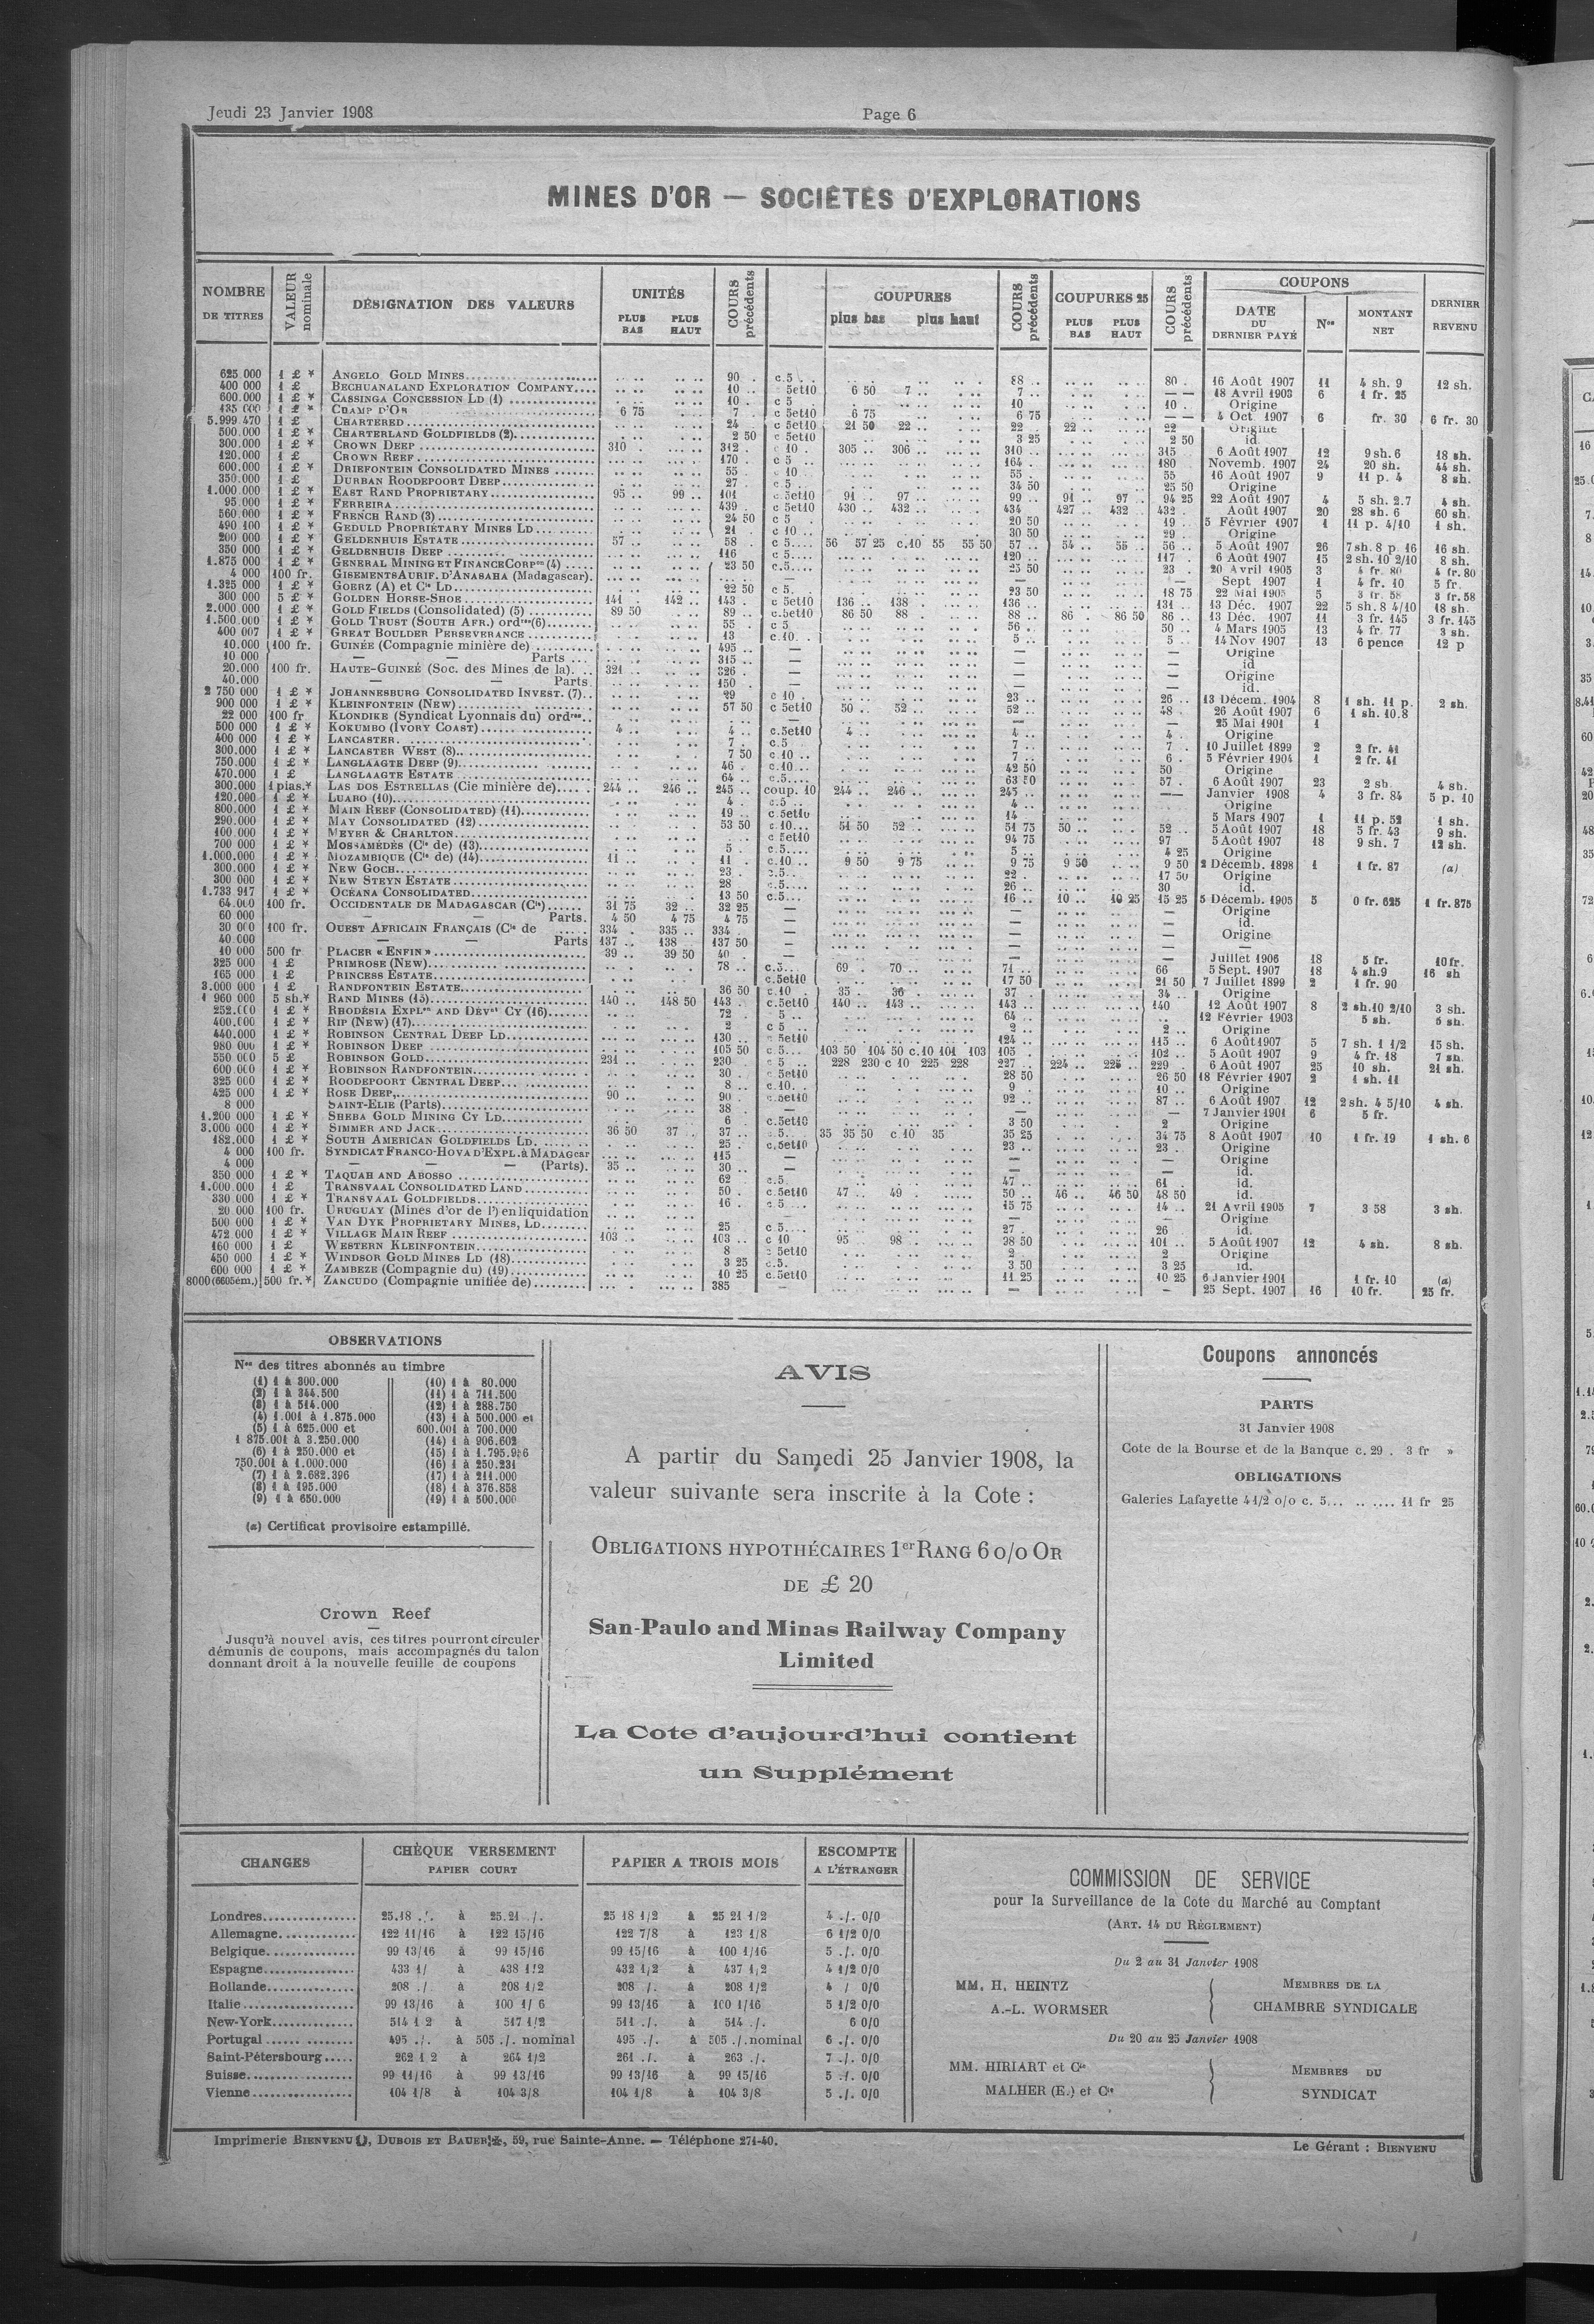 Jeudi 23 Janvier 1908
Page 6
MINES D'OR — SOCIÉTÉS D'EXPLORATIONS
NOMBRE DE TITRES
VALEUR nominale
DÉSIGNATION DES VALEURS
UNITÉS
PLUS BAS PLUS HAUT
COURS précédents
COUPURES
plus bas plus haut
COURS précédents
COUPURES 25
PLUS BAS PLUS HAUT
COURS précédents
COUPONS
DATE DU DERNIER PAYÉ
Nos
MONTANT NET
DERNIER REVENU
625.000 1 £ * ANGELO GOLD MINES 90 . c.5 88 .. 80 . 16 Août 1907 11 4 sh. 9 12 sh.
400 000 1 £ BECHUANALAND EXPLORATION COMPANY 10 .. 5et10 6 50 7 .. 7 .. — — 18 Avril 1903 6 1 fr. 25
600.000 1 £ * CASSINGA CONCESSION LD (1) 10 . c 5 10 10 . Origine
135 000 1 £ * CHAMP D'OR 6 75 7 . c 5et10 6 75 6 75 — — 4 Oct 1907 6 fr. 30 6 fr. 30
5.999 470 1 £ CHARTERED 24 c 5et10 21 50 22 .. 22 .. 22 .. 22 Origine
500.000 1 £ * CHARTERLAND GOLDFIELDS (2) 2 50 c 5et10 3 25 2 50 id.
300.000 1 £ * CROWN DEEP 310 . 312 . c 10 . 305 .. 306 .. 310 .. 315 6 Août 1907 12 9 sh. 6 18 sh.
120.000 1 £ CROWN REEF 170 . c 5 164 . 180 Novemb. 1907 24 20 sh. 44 sh.
600.000 1 £ * DRIEFONTEIN CONSOLIDATED MINES 55 . c 10 . 55 .. 55 16 Août 1907 9 11 p. 4 8 sh.
350.000 1 £ DURBAN ROODEPOORT DEEP 27 c 5 34 50 25 50 Origine
1.000.000 1 £ * EAST RAND PROPRIETARY 95 .. 99 .. 101 c.5et10 91 .. 97 .. 99 .. 91 .. 97 .. 94 25 22 Août 1907 4 5 sh. 2.7 4 sh.
95.000 1 £ * FERREIRA 439 . c 5et10 430 .. 432 .. 434 427 .. 432 .. 432 . Août 1907 20 28 sh. 6 60 sh.
560.000 1 £ * FRENCH RAND (3) 24 50 c 5 20 50 19 .. 5 Février 1907 1 11 p. 4/10 1 sh.
490 100 1 £ * GEDULD PROPRIETARY MINES LD 21 c 10 .. 30 50 29 . Origine
200 000 1 £ * GELDENHUIS ESTATE 57 .. 58 . c 5.... 56 57 25 c.10 55 55 50 57 .. 54 .. 55 .. 56 .. 5 Août 1907 26 7 sh. 8 p. 16 16 sh.
350 000 1 £ * GELDENHUIS DEEP 116 c.5.... 120 .. 117 . 6 Août 1907 15 2 sh. 10 2/10 8 sh.
1.875 000 1 £ * GENERAL MINING ET FINANCE CORPon (4) 23 50 c.5.... 25 50 23 . 20 Avril 1905 3 4 fr. 80 4 fr. 80
4 000 100 fr. GISEMENTS AURIF. D'ANASAHA (Madagascar). — — — Sept 1907 1 4 fr. 10 5 fr.
1.325 000 1 £ * GOERZ (A) et Cie LD 22 50 c 5. 23 50 18 75 22 Mai 1905 5 3 fr. 58 3 fr. 58
300 000 5 £ * GOLDEN HORSE-SHOE 141 . 142 .. 143 . c 5et10 136 .. 138 . 136 .. 131 .. 13 Déc. 1907 22 5 sh. 8 4/10 18 sh.
2.000.000 1 £ * GOLD FIELDS (Consolidated) (5) 89 50 89 .. c.5et10 86 50 88 . 88 .. 86 . 86 50 86 .. 13 Déc. 1907 11 3 fr. 145 3 fr. 145
1.500.000 1 £ * GOLD TRUST (SOUTH AFR.) ordres(6) 55 . c 5 56 . 50 .. 4 Mars 1905 13 4 fr. 77 3 sh.
400 007 1 £ * GREAT BOULDER PERSEVERANCE 13 c.10. . 5 .. 5 .. 14 Nov 1907 13 6 pence 12 p
10.000 100 fr. GUINÉE (Compagnie minière de) 495 .. — — — Origine
10 000 — — Parts 315 .. — — — id
20.000 100 fr. HAUTE-GUINEÉ (Soc. des Mines de la). 321 326 . — — — Origine
40.000 — — Parts 150 . — — — id.
2 750 000 1 £ * JOHANNESBURG CONSOLIDATED INVEST. (7) 29 c 10 . 23 .. 26 .. 13 Décem. 1904 8 1 sh. 11 p. 2 sh.
900 000 1 £ * KLEINFONTEIN (NEW) 57 50 c 5et10 50 .. 52 .. 52 .. 48 . 26 Août 1907 6 1 sh. 10.8
22 000 100 fr. KLONDIKE (Syndicat Lyonnais du) ordres — — — 25 Mai 1901 1
500 000 1 £ * KOKUMBO (IVORY COAST) 4 .. 4 .. c.5et10 4 .. 4 .. 4 . Origine
400 000 1 £ * LANCASTER 7 . c.5 7 .. 7 . 10 Juillet 1899 2 2 fr. 41
300.000 1 £ * LANCASTER WEST (8) 7 50 c.10 .. 7 .. 6 . 5 Février 1904 1 2 fr. 41
750.000 1 £ * LANGLAAGTE DEEP (9) 46 . c.10... 42 50 50 Origine
470.000 1 £ LANGLAAGTE ESTATE 64 .. c.5.... 63 50 57 . 6 Août 1907 23 2 sh. 4 sh.
300.000 1 plas.* LAS DOS ESTRELLAS (Cie minière de) 244 .. 246 .. 245 .. coup. 10 244 .. 246 .. 245 .. —— Janvier 1908 4 3 fr. 84 5 p. 10
120.000 1 £ * LUABO (10) 4 . c.5 .. 4 .. Origine
800.000 1 £ * MAIN REEF (CONSOLIDATED) (11) 19 .. c.5et10 14 5 Mars 1907 1 11 p. 52 1 sh.
290.000 1 £ * MAY CONSOLIDATED (12) 53 50 c.10... 51 50 52 .. 51 75 50 .. 52 .. 5 Août 1907 18 5 fr. 43 9 sh.
100.000 1 £ * MEYER & CHARLTON c 5et10 94 75 97 5 Août 1907 18 9 sh. 7 12 sh.
700 000 1 £ * MOSSAMÉDÈS (Cie de) (13) 5 . c.5.... 5 .. 4 25 Origine
1.000.000 1 £ * MOZAMBIQUE (Cie de) (14) 11 .. 11 . c.10 ... 9 50 9 75 9 75 9 50 9 50 2 Décemb. 1898 1 1 fr. 87 (a)
300.000 1 £ * NEW GOCH 23 . c.5.. 22 .. 17 50 Origine
300 000 1 £ * NEW STEYN ESTATE 28 c.5.... 26 .. 30 id.
1.733 917 1 £ * OCÉANA CONSOLIDATED 13 50 c.5... 16 .. 10 .. 10 25 15 25 5 Décemb. 1905 5 0 fr. 625 1 fr. 875
64.000 100 fr. OCCIDENTALE DE MADAGASCAR (Cie) 31 75 32 .. 32 25 — — — Origine
60 000 — — Parts. 4 50 4 75 4 75 — — — id.
30 000 100 fr. OUEST AFRICAIN FRANÇAIS (Cie de 334 . 335 .. 334 . — — — Origine
40.000 — — Parts 137 .. 138 137 50 — — —
10 000 500 fr PLACER « ENFIN » 39 .. 39 50 40 . — — — Juillet 1906 18 5 fr. 10 fr.
325 000 1 £ PRIMROSE (NEW) 78 .. c.5... 69 . 70 .. 71 .. 66 5 Sept. 1907 18 4 sh.9 16 sh
165 000 1 £ PRINCESS ESTATE c.5et10 17 50 21 50 7 Juillet 1899 2 1 fr. 90
3.000 000 1 £ RANDFONTEIN ESTATE 36 50 c.10 .. 35 . 36 . 37 . 34 .. Origine
1 960 000 5 sh.* RAND MINES (15) 140 .. 148 50 143 . c.5et10 140 .. 143 .. 143 .. 140 12 Août 1907 8 2 sh.10 2/10 3 sh.
252.000 1 £ * RHODÉSIA EXPLon AND DÉVnt CY (16) 72 . 5 .. 64 . 12 Février 1903 5 sh. 5 sh.
400.000 1 £ * RIP (NEW) (17) 2 c 5 .. 2 .. 2 .. Origine
440.000 1 £ * ROBINSON CENTRAL DEEP LD 130 .. 5et10 124 .. 115 .. 6 Août 1907 5 7 sh. 1 1/2 15 sh.
980 000 1 £ * ROBINSON DEEP 105 50 c.5... 103 50 104 50 c.10 101 103 105 . 102 .. 5 Août 1907 9 4 fr. 18 7 sh.
550 000 5 £ ROBINSON GOLD 231 230 . c 5 .. 228 230 c 10 225 228 227 .. 224 .. 225 .. 229 . 6 Août 1907 25 10 sh. 21 sh.
600.000 1 £ * ROBINSON RANDFONTEIN 30 . c 5et10 28 50 26 50 18 Février 1907 2 1 sh. 11
325 000 1 £ * ROODEPOORT CENTRAL DEEP 8 .. c.10. . 9 10 .. Origine
425 000 1 £ * ROSE DEEP 90 .. 90 . c.5et10 92 .. 87 .. 6 Août 1907 12 2 sh. 4 5/10 4 sh.
8 000 SAINT-ELIE (Parts) 38 . — — — 7 Janvier 1901 6 5 fr.
1.200 000 1 £ * SHEBA GOLD MINING CY LD 6 c.5et10 3 50 2 Origine
3.000 000 1 £ * SIMMER AND JACK 36 50 37 . 37 .. c.5... 35 35 50 c.10 35 35 25 34 75 8 Août 1907 10 1 fr. 19 1 sh. 6
182.000 1 £ * SOUTH AMERICAN GOLDFIELDS LD. 25 . c.5et10 23 .. 23 . Origine
4 000 100 fr. SYNDICAT FRANCO-HOVA D'EXPL. à MADAGcar 115 — — — Origine
4 000 — — — (Parts). 35 .. 30 .. — — — id.
350 000 1 £ * TAQUAH AND ABOSSO 62 c.5 47 .. 61 . id.
1.000.000 1 £ TRANSVAAL CONSOLIDATED LAND 50 . c.5et10 47 .. 49 . 50 .. 46 .. 46 50 48 50 id.
330 000 1 £ * TRANSVAAL GOLDFIELDS 16 . c 5 15 75 14 .. 21 Avril 1905 7 3 58 3 sh.
20 000 100 fr. URUGUAY (Mines d'or de l') en liquidation — — Origine
500 000 1 £ * VAN DYK PROPRIETARY MINES, LD 25 c 5.... 27 . 26 id.
472 000 1 £ * VILLAGE MAIN REEF 103 .. 103 .. c 10 95 .. 98 .. 38 50 101 .. 5 Août 1907 12 4 sh. 8 sh.
160 000 1 £ WESTERN KLEINFONTEIN 8 5et10 2 . 2 Origine
450 000 1 £ * WINDSOR GOLD MINES LD (18) 3 25 c.5. 3 50 3 25 id.
600 000 1 £ * ZAMBEZE (Compagnie du) (19) 10 25 c.5et10 11 25 10 25 6 Janvier 1901 1 fr. 10 (a)
8000 (6605ém.) 500 fr.* ZANCUDO (Compagnie unifiée de) 385 — — — 25 Sept. 1907 16 10 fr. 25 fr.
OBSERVATIONS
Nos des titres abonnés au timbre
(1) 1 à 300.000
(2) 1 à 344.500
(3) 1 à 514.000
(4) 1.001 à 1.875.000
(5) 1 à 625.000 et
1 875.001 à 3.250.000
(6) 1 à 250.000 et
750.001 à 1.000.000
(7) 1 à 2.682.396
(8) 1 à 195.000
(9) 1 à 650.000
(10) 1 à 80.000
(11) 1 à 711.500
(12) 1 à 288.750
(13) 1 à 500.000 et
600.001 à 700.000
(14) 1 à 906.602
(15) 1 à 1.795.956
(16) 1 à 250.231
(17) 1 à 211.000
(18) 1 à 376.858
(19) 1 à 500.000
(a) Certificat provisoire estampillé.
Crown Reef
Jusqu'à nouvel avis, ces titres pourront circuler
démunis de coupons, mais accompagnés du talon
donnant droit à la nouvelle feuille de coupons
AVIS
A partir du Samedi 25 Janvier 1908, la
valeur suivante sera inscrite à la Cote :
OBLIGATIONS HYPOTHÉCAIRES 1er RANG 6 o/o OR
DE £ 20
San-Paulo and Minas Railway Company
Limited
La Cote d'aujourd'hui contient
un Supplément
Coupons annoncés
PARTS
31 Janvier 1908
Cote de la Bourse et de la Banque c. 29 . 3 fr »
OBLIGATIONS
Galeries Lafayette 4 1/2 o/o c. 5... .. .... 11 fr 25
CHANGES
CHÈQUE VERSEMENT
PAPIER COURT
PAPIER A TROIS MOIS
ESCOMPTE
A L'ÉTRANGER
Londres 25.18 ./. à 25.21 ./. 25 18 1/2 à 25 21 1/2 4 ./. 0/0
Allemagne 122 11/16 à 122 15/16 122 7/8 à 123 1/8 6 1/2 0/0
Belgique 99 13/16 à 99 15/16 99 15/16 à 100 1/16 5 ./. 0/0
Espagne 433 1/ à 438 1/2 432 1/2 à 437 1/2 4 1/2 0/0
Hollande 208 ./ à 208 1/2 208 /. à 208 1/2 4 / 0/0
Italie 99 13/16 à 100 1/ 6 99 13/16 à 100 1/16 5 1/2 0/0
New-York 514 1 2 à 517 1/2 511 ./. à 514 ./. 6 0/0
Portugal 495 ./. à 505 ./. nominal 495 ./. à 505 ./. nominal 6 ./. 0/0
Saint-Pétersbourg 262 1 2 à 264 1/2 261 ./. à 263 ./. 7 ./. 0/0
Suisse 99 11/16 à 99 13/16 99 13/16 à 99 15/16 5 ./. 0/0
Vienne 104 1/8 à 104 3/8 104 1/8 à 104 3/8 5 ./. 0/0
COMMISSION DE SERVICE
pour la Surveillance de la Cote du Marché au Comptant
(ART. 14 DU RÈGLEMENT)
Du 2 au 31 Janvier 1908
MM. H. HEINTZ
A.-L. WORMSER
MEMBRES DE LA
CHAMBRE SYNDICALE
Du 20 au 25 Janvier 1908
MM. HIRIART et Cie
MALHER (E.) et Cie
MEMBRES DU
SYNDICAT
Imprimerie BIENVENU, DUBOIS ET BAUER, 59, rue Sainte-Anne. — Téléphone 271-40.
Le Gérant : BIENVENU